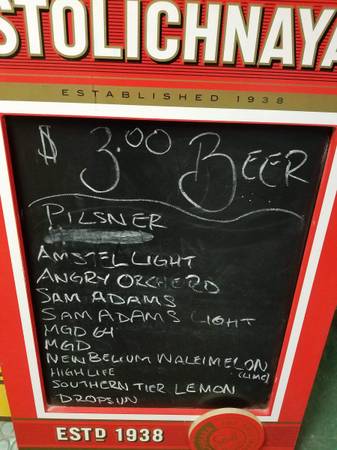 STOLICHNAYA
ESTABLISHED 1938
$ 3.00 BEER
PILSNER
AMSTEL LIGHT
ANGRY ORCHERD
SAM ADAMS
SAM ADAMS LIGHT
MGD 64
MGD
NEW BELGIUM WATERMELON
(LIME)
HIGH LIFE
SOUTHERN TIER LEMON
DROP SUN
ESTD 1938